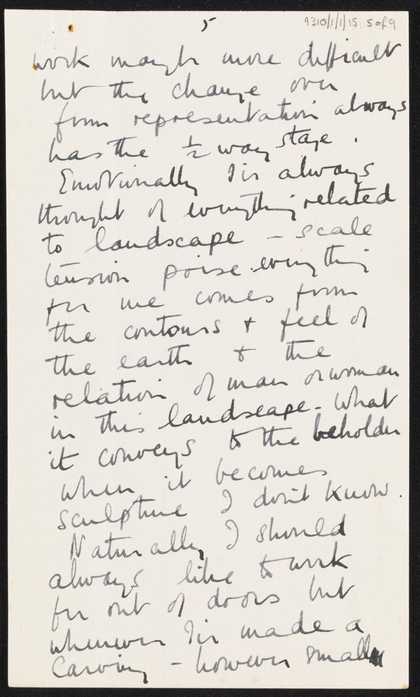 5
9310/1/1/15 5 of 9
work maybe more difficult
but the change over
from representation always
has the ½ way stage.
Emotionally I've always
thought of everything related
to landscape – scale
tension poise. everything
for me comes from
the contours & feel of
the earth & the
relation of man or woman
in this landscape – what
it conveys to the beholder
when it becomes
sculpture I don't know.
Naturally I should
always like to work
for out of doors but
whenever I've made a
Carving – however small